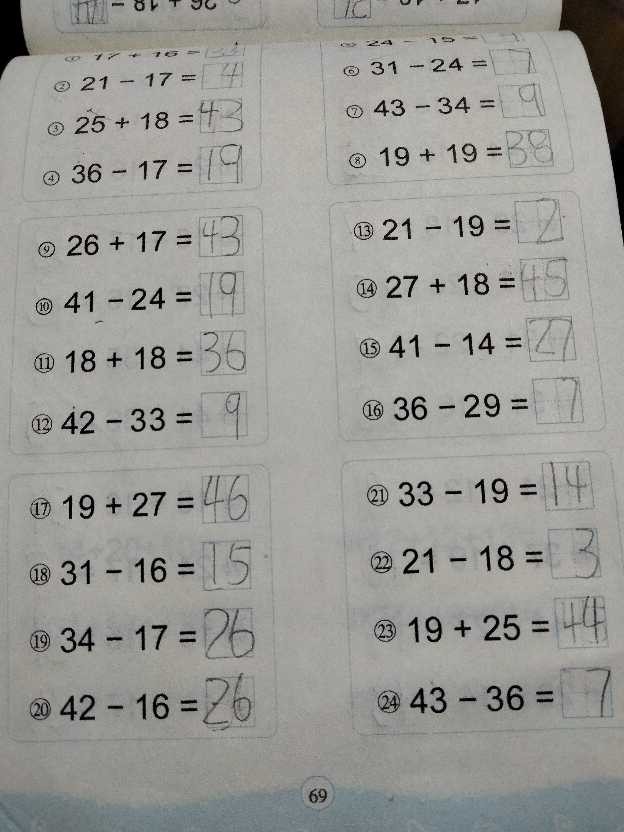 ② 21 − 17 = 4
③ 25 + 18 = 43
④ 36 − 17 = 19
⑥ 31 − 24 = 7
⑦ 43 − 34 = 9
⑧ 19 + 19 = 38
⑨ 26 + 17 = 43
⑩ 41 − 24 = 19
⑪ 18 + 18 = 36
⑫ 42 − 33 = 9
⑬ 21 − 19 = 2
⑭ 27 + 18 = 45
⑮ 41 − 14 = 27
⑯ 36 − 29 = 7
⑰ 19 + 27 = 46
⑱ 31 − 16 = 15
⑲ 34 − 17 = 26
⑳ 42 − 16 = 26
㉑ 33 − 19 = 14
㉒ 21 − 18 = 3
㉓ 19 + 25 = 44
㉔ 43 − 36 = 7
69